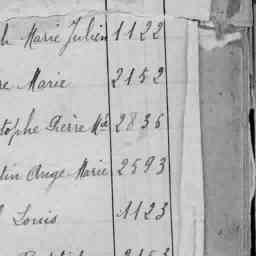 h Marie Julien 1122
re Marie 2152
tophe Pierre Mie 2836
tin Ange Marie 2593
Louis 1123
2153